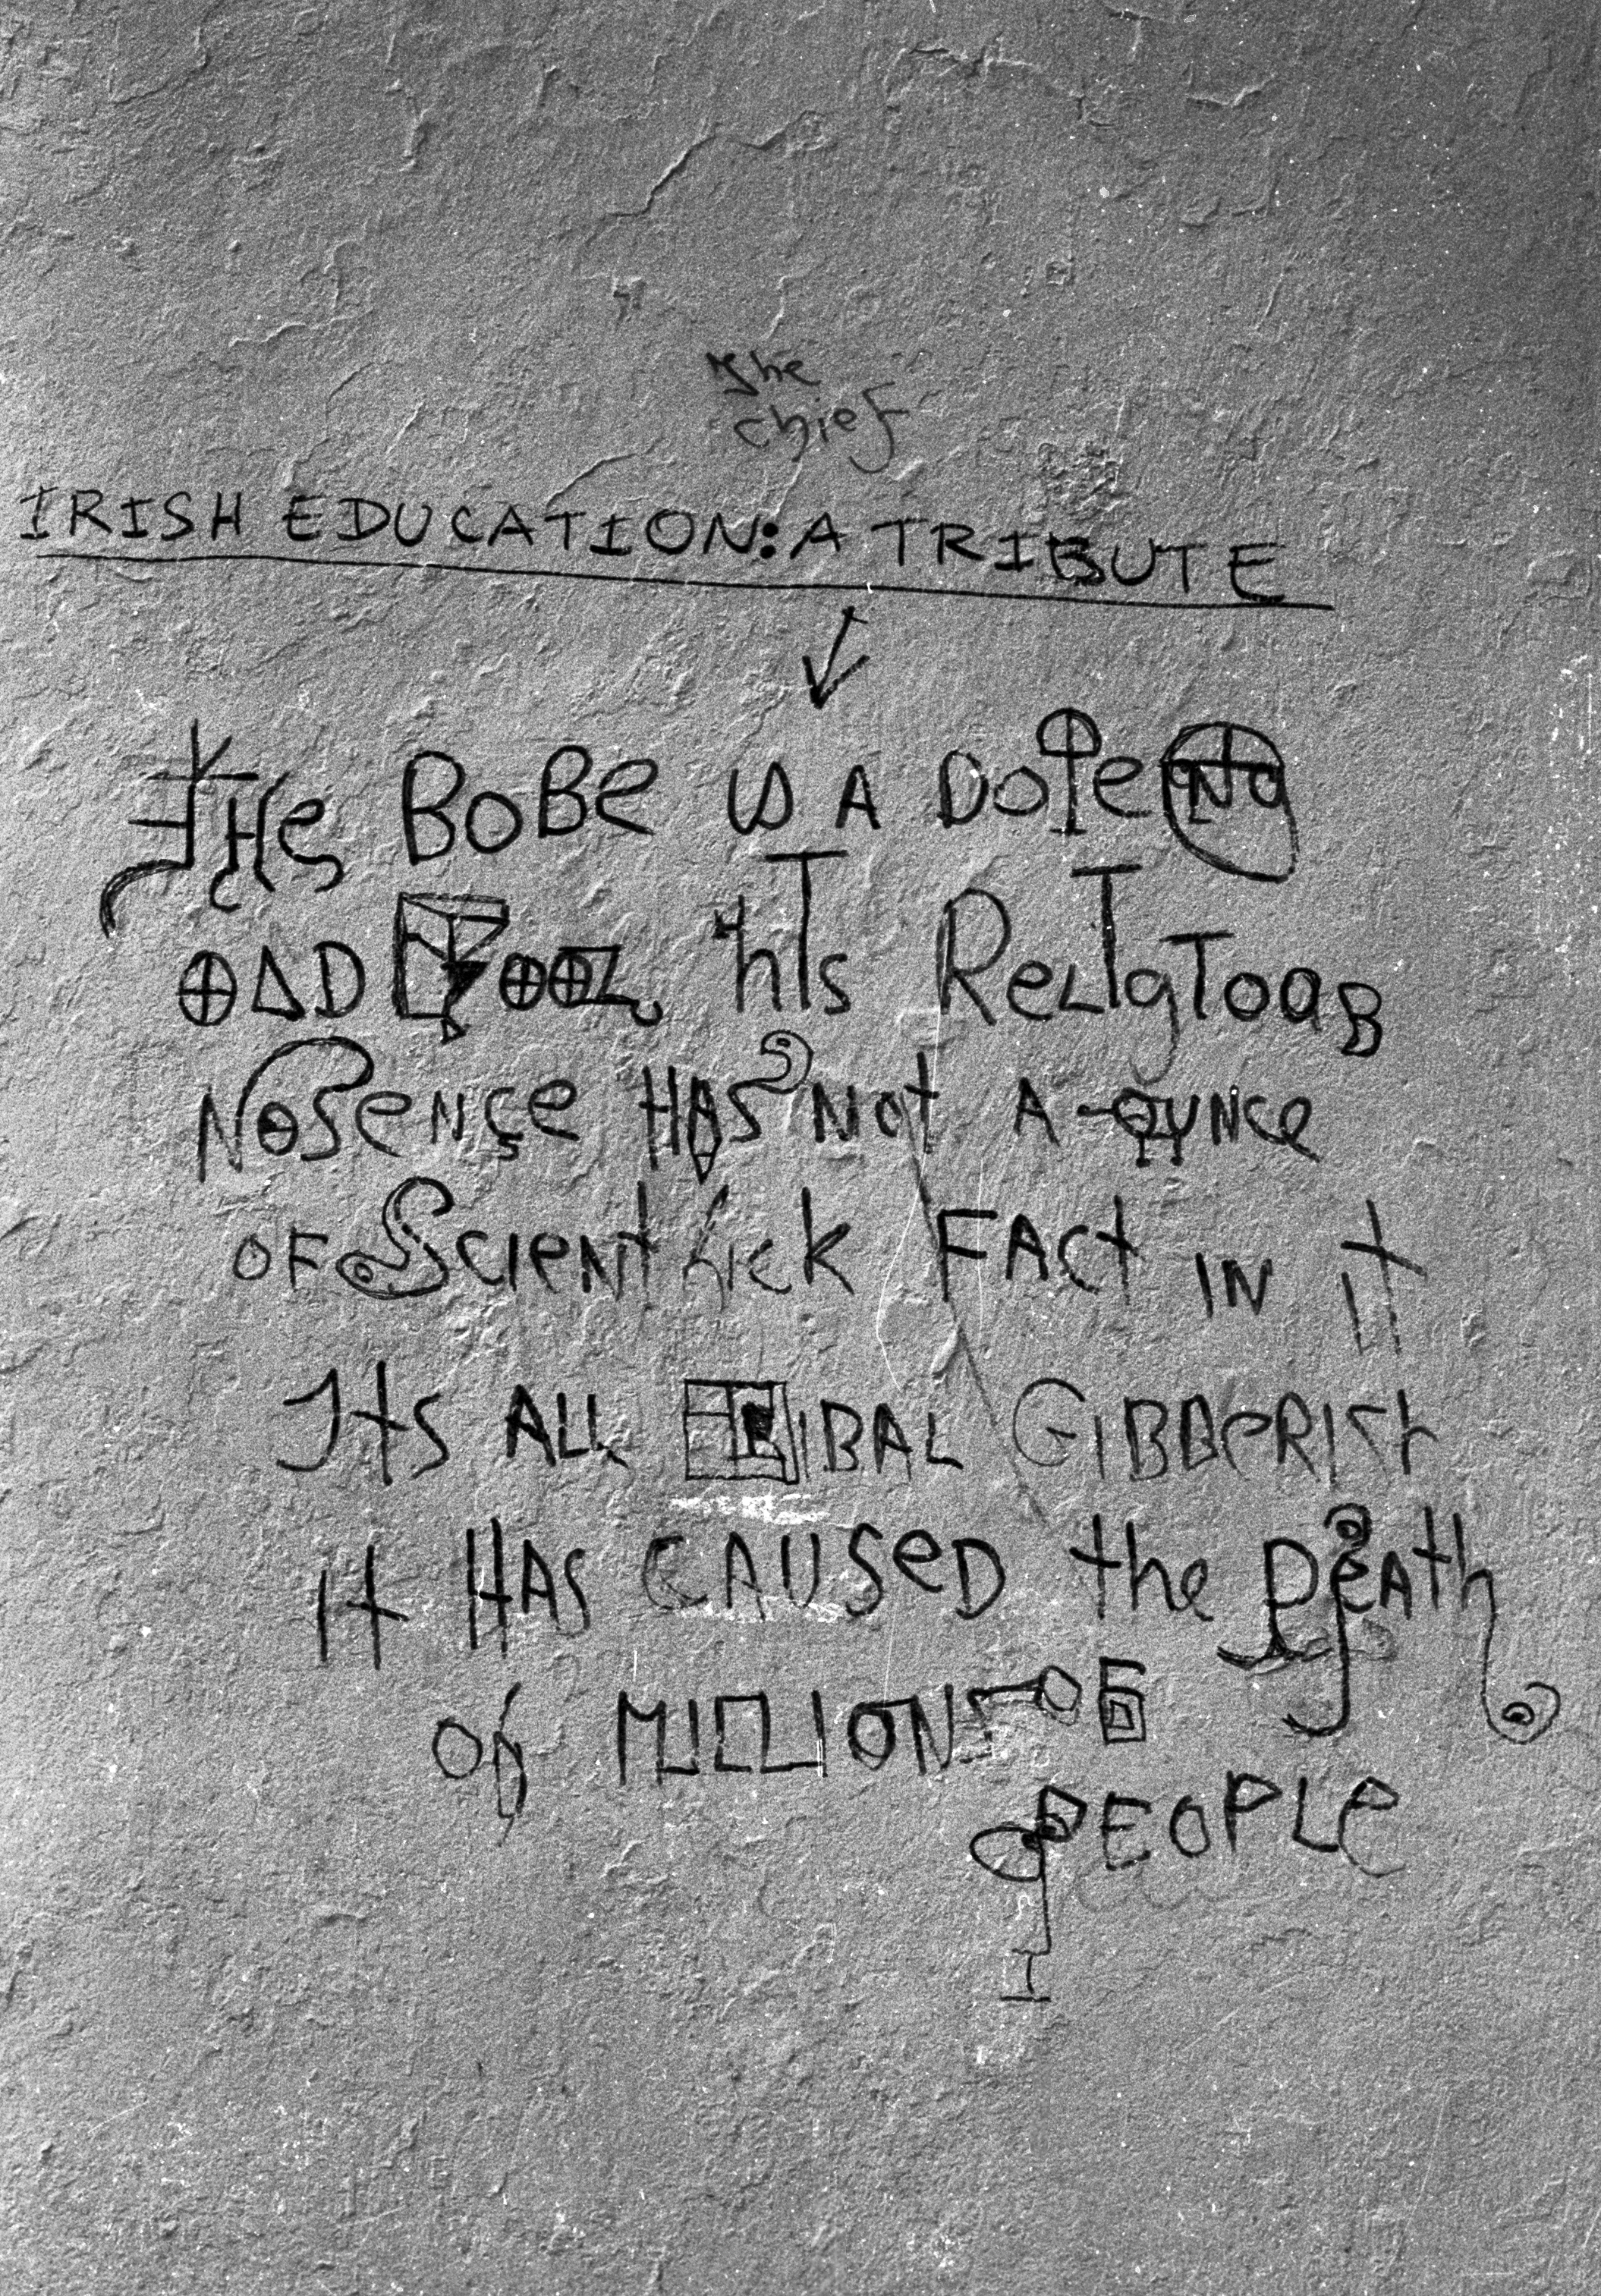 the
chief
IRISH EDUCATION: A TRIBUTE
THe BoBe is A Dope
OAD FOOL hIs ReLIgIoaB
NoSeNce HAS Not A OUNce
OF ScIeNtifick FAct IN It
Its ALL TRIBAL GIBBeRISH
It HAS CAUSeD the DeAth
of MILLIONS OF
PEOPLe